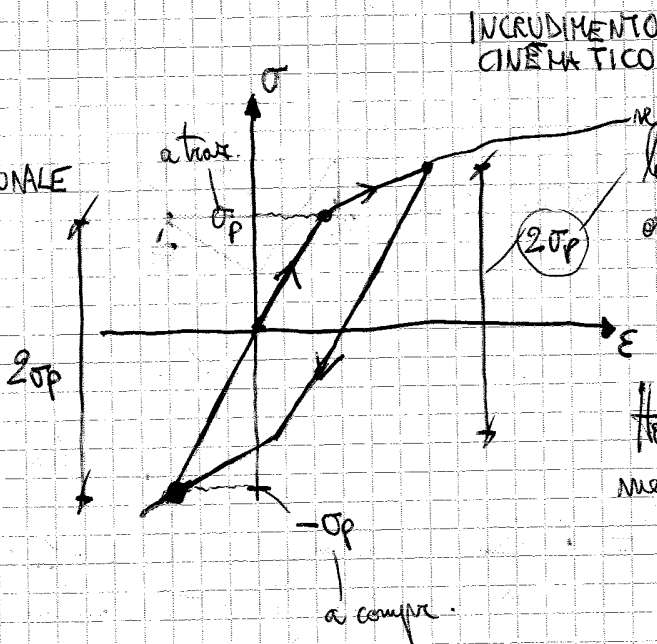 INCRUDIMENTO
CINEMATICO
σ
a traz.
ONALE
σp
2σp
2σp
ε
-σp
a compr.